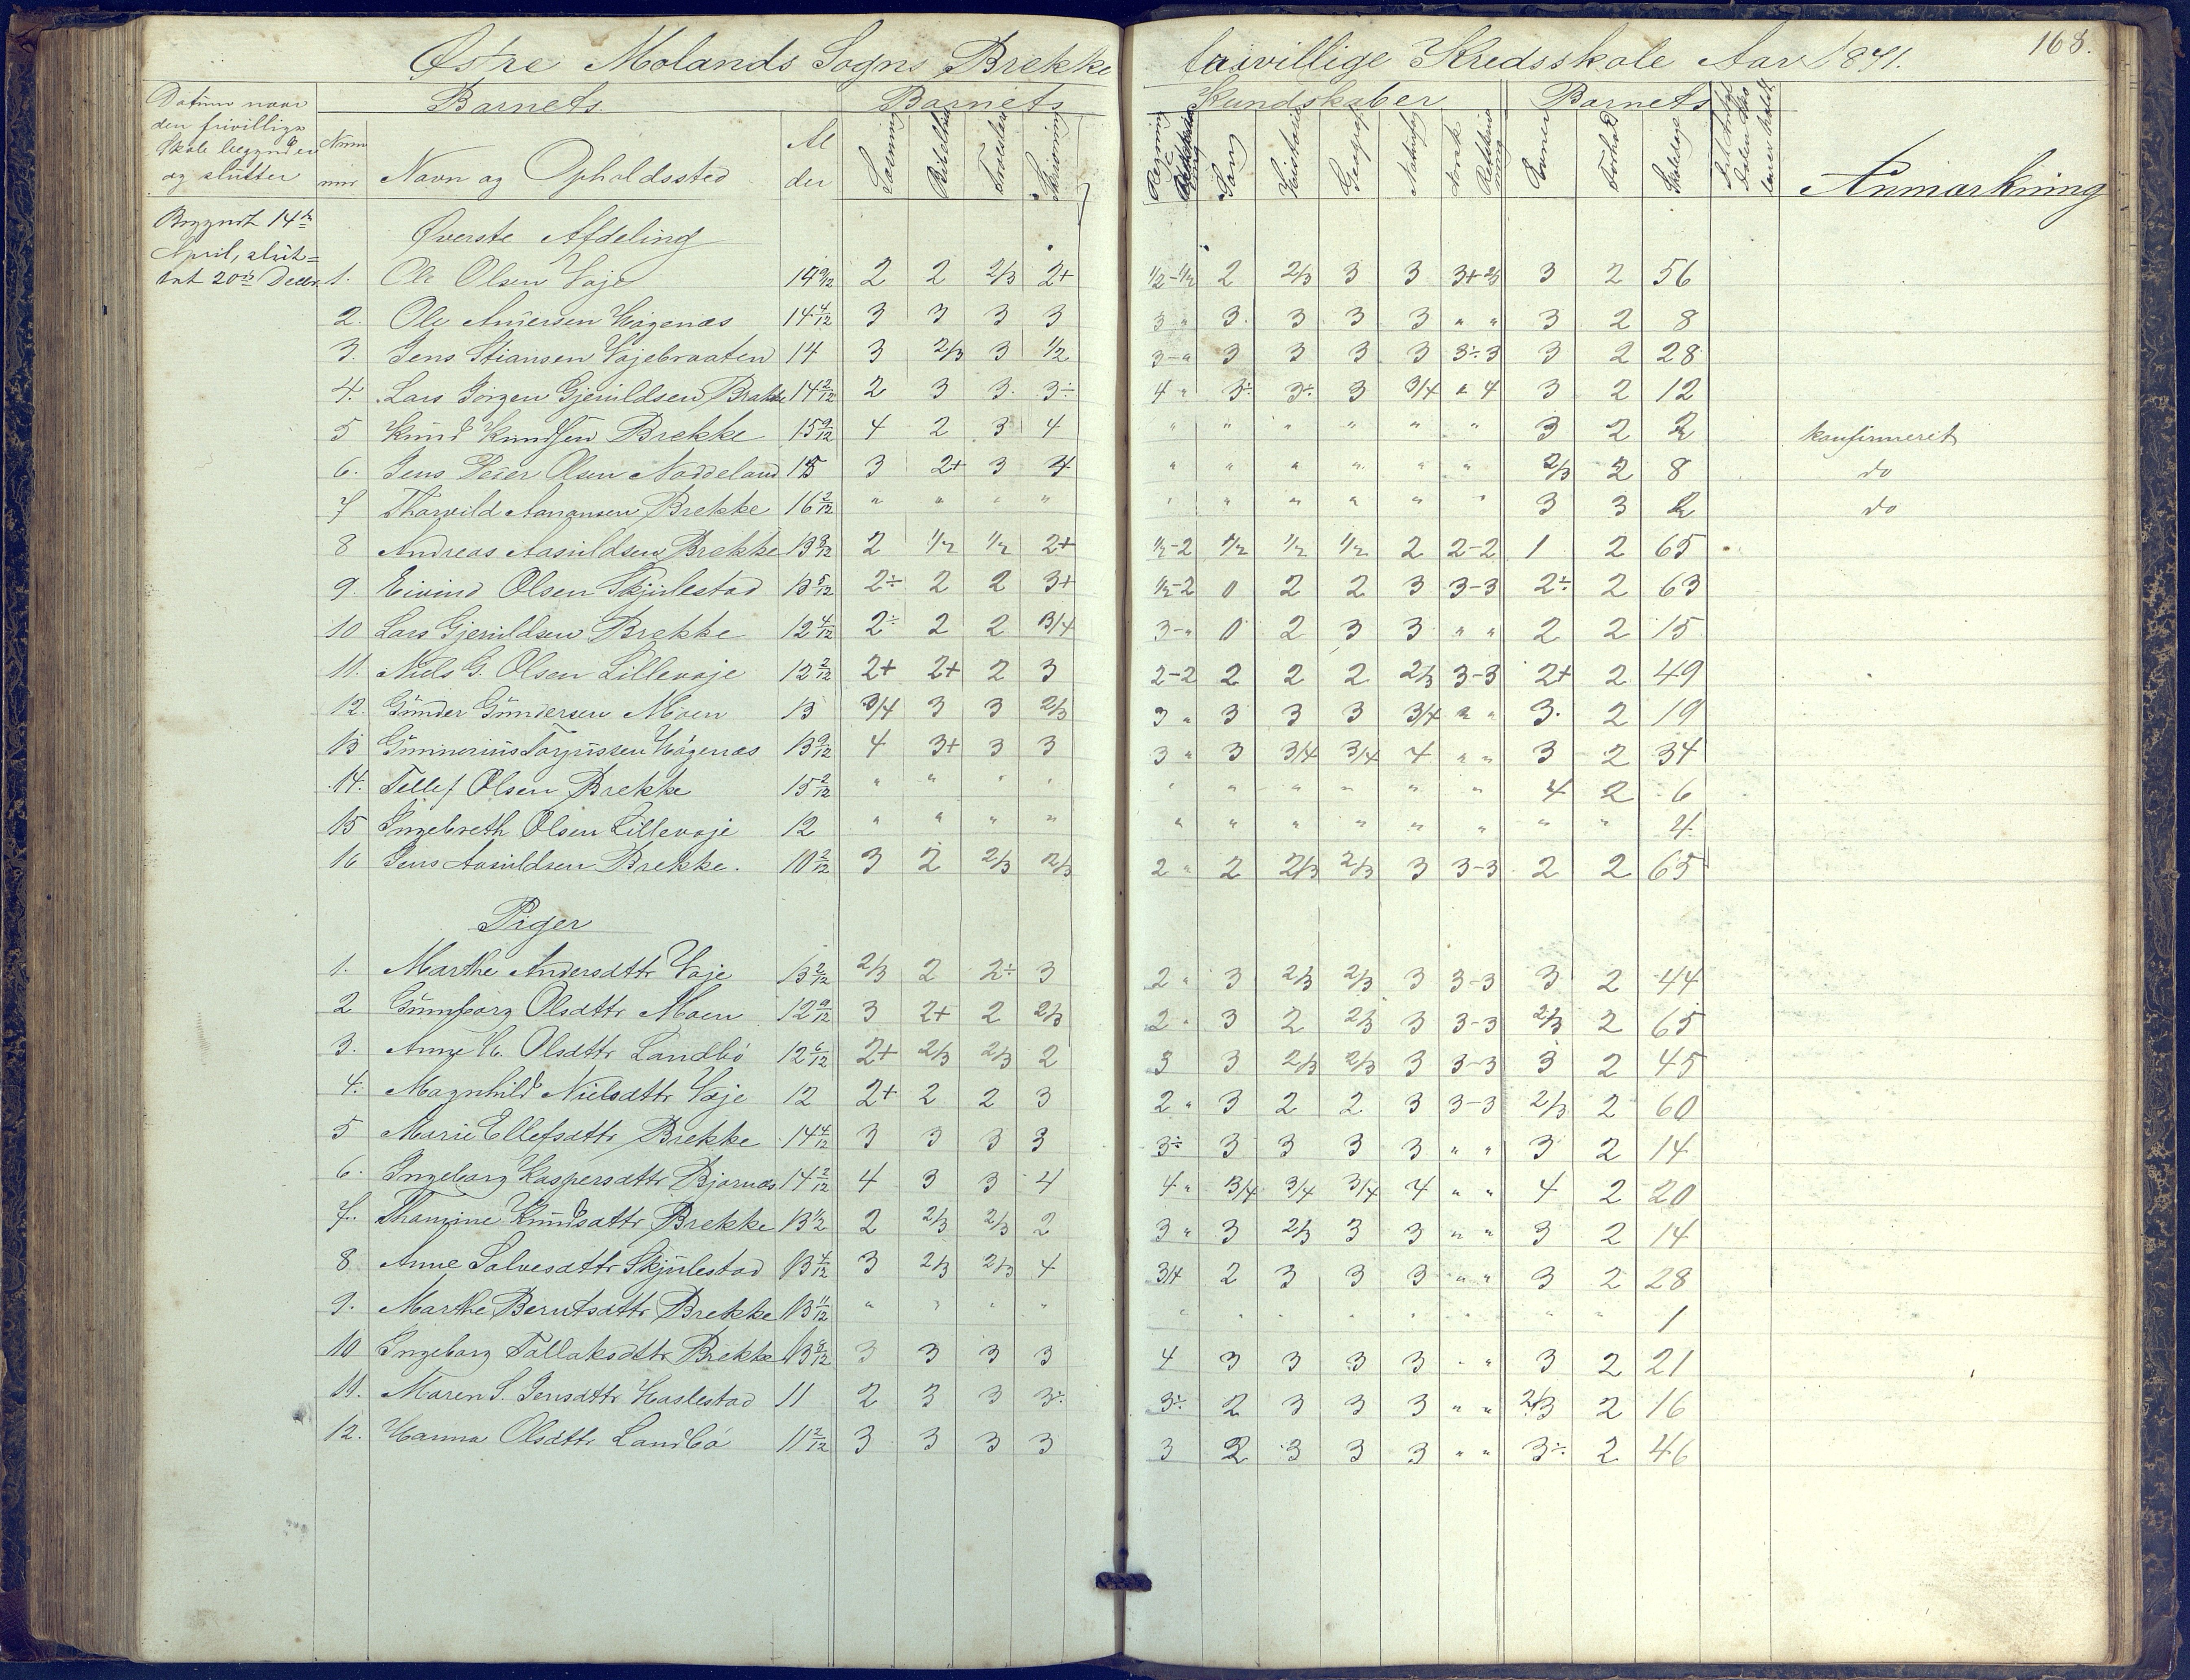 168.
Østre Molands Sogns Brekke frivillige Kredsskole Aar 1871.
Datum naar den frivillige Skole begynder og slutter
Barnets
Barnets Kundskaber
Barnets
Num mer
Navn og Opholdssted
Al der
Læsning
Troeslære
Skrivning
Regning
Sang
Historie
Geografi
Naturfag
Norsk
Evner
Forhold
Skoledage
Anmærkning
Begyndt 14de April, slut= tet 20de Decbr.
Øverste Afdeling
1. Ole Olsen Vaje 14 9/12 2 2 2/3 2+ 1/2-1/2 2 2/3 3 3 3+ 2/3 3 2 56
2. Ole Andersen Hagenæs 14 4/12 3 3 3 3 3 " 3. 3 3 3 " " 3 2 8
3. Jens Stiansen Vajebraaten 14 3 2/3 3 1/2 3-" 3 3 3 3 3÷3 3 2 28
4. Lars Jørgen Gjeruldsen Brekke 14 2/12 2 3 3. 3÷ 4 " 3÷ 3÷ 3 3/4 " 4 3 2 12
5 Knud Knudsen Brekke 15 9/12 4 2 3 4 " " " " " " 3 2 2 konfirmeret
6. Jens Peder Olsen Noddeland 15 3 2+ 3 4 " " " " " " 2/3 2 8 do
7 Thorvild Aanonsen Brekke 16 2/12 " " " " " " " " " " 3 3 2 do
8 Andreas Aasuldsen Brekke 13 8/12 2 1/2 1/2 2+ 1/2-2 1/2 1/2 1/2 2 2-2 1 2 65
9. Eivind Olsen Skjulestad 13 5/12 2÷ 2 2 3+ 1/2-2 0 2 2 3 3-3 2÷ 2 63
10 Lars Gjeruldsen Brekke 12 4/12 2÷ 2 2 3/4 3-" 0 2 3 3 " " 2 2 15
11. Niels G. Olsen Lillevaje 12 2/12 2+ 2+ 2 3 2-2 2 2 2 2/3 3-3 2+ 2 49
12. Gunder Gundersen Moen 13 3/4 3 3 2/3 3 " 3 3 3 3/4 " " 3. 2 19
13 Gunnerius Torjussen Hagenæs 13 9/12 4 3+ 3 3 3 " 3 3/4 3/4 4 " " 3 2 34
14. Tellef Olsen Brekke 15 2/12 " " " " " " " " " " 4 2 6
15 Ingebreth Olsen Lillevaje 12 " " " " " " " " " " " " 4
16 Jens Aasuldsen Brekke. 10 2/12 3 2 2/3 2/3 2 " 2 2/3 2/3 3 3-3 2 2 65
Piger
1. Marthe Andersdttr Vaje 13 2/12 2/3 2 2÷ 3 2 " 3 2/3 2/3 3 3-3 3 2 44
2 Gunborg Olsdttr Moen 12 9/12 3 2+ 2 2/3 2 " 3 2 2/3 3 3-3 2/3 2 65
3. Anne H. Olsdttr Landbø 12 6/12 2+ 2/3 2/3 2 3 3 2/3 2/3 3 3-3 3 2 45
4. Magnhild Nielsdttr Vaje 12 2+ 2 2 3 2 " 3 2 2 3 3-3 2/3 2 60
5 Marie Ellefsdttr Brekke 14 4/12 3 3 3 3 3÷ 3 3 3 3 " " 3 2 14
6. Ingeborg Kaspersdttr Bjornæs 14 2/12 4 3 3 4 4 " 3/4 3/4 3/4 4 " " 4 2 20
7. Thomine Knudsdttr Brekke 13 1/2 2 2/3 2/3 2 3 " 3 2/3 3 3 " " 3 2 14
8 Anne Salvesdttr Skjulestad 13 4/12 3 2/3 2/3 4 3/4 2 3 3 3 " " 3 2 28
9. Marthe Berntsdttr Brekke 13 11/12 " " " " " " " " " " " " 1
10 Ingeborg Tallaksdttr Brekke 13 8/12 3 3 3 3 4 3 3 3 3 " " 3 2 21
11. Maren S. Jensdttr Haslestad 11 2 3 3 3÷ 3÷ 2 3 3 3 " " 2/3 2 16
12. Hanna Olsdttr Landbø 11 2/12 3 3 3 3 3 2 3 3 3 " " 3÷ 2 46